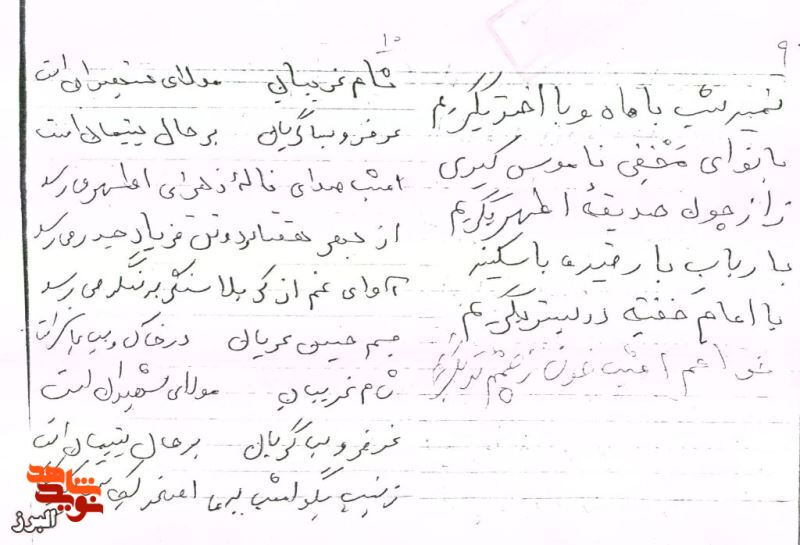 ۹
نیمه شب با ماه و با اختر بگریم
با نوای مخفی ناموس کبری
زار چون صدیقهٔ اطهر بگریم
با رباب با رقیه با سکینه
با امام خفته در بستر بگریم
خواهم امشب خون
۱۰
شام غریبان مولای شهیدان است
عرش و سما گریان بر حال یتیمان است
امشب صدای نالهٔ زهرای اطهر می رسد
از فریاد حیدر می رسد
آوای غم از کربلا می رسد
جسم حسین عریان در خاک و
شام غریبان مولای شهیدان است
عرش و سما گریان بر حال یتیمان است
زینب بگو امشب اصغر
نوید شاهد
البرز